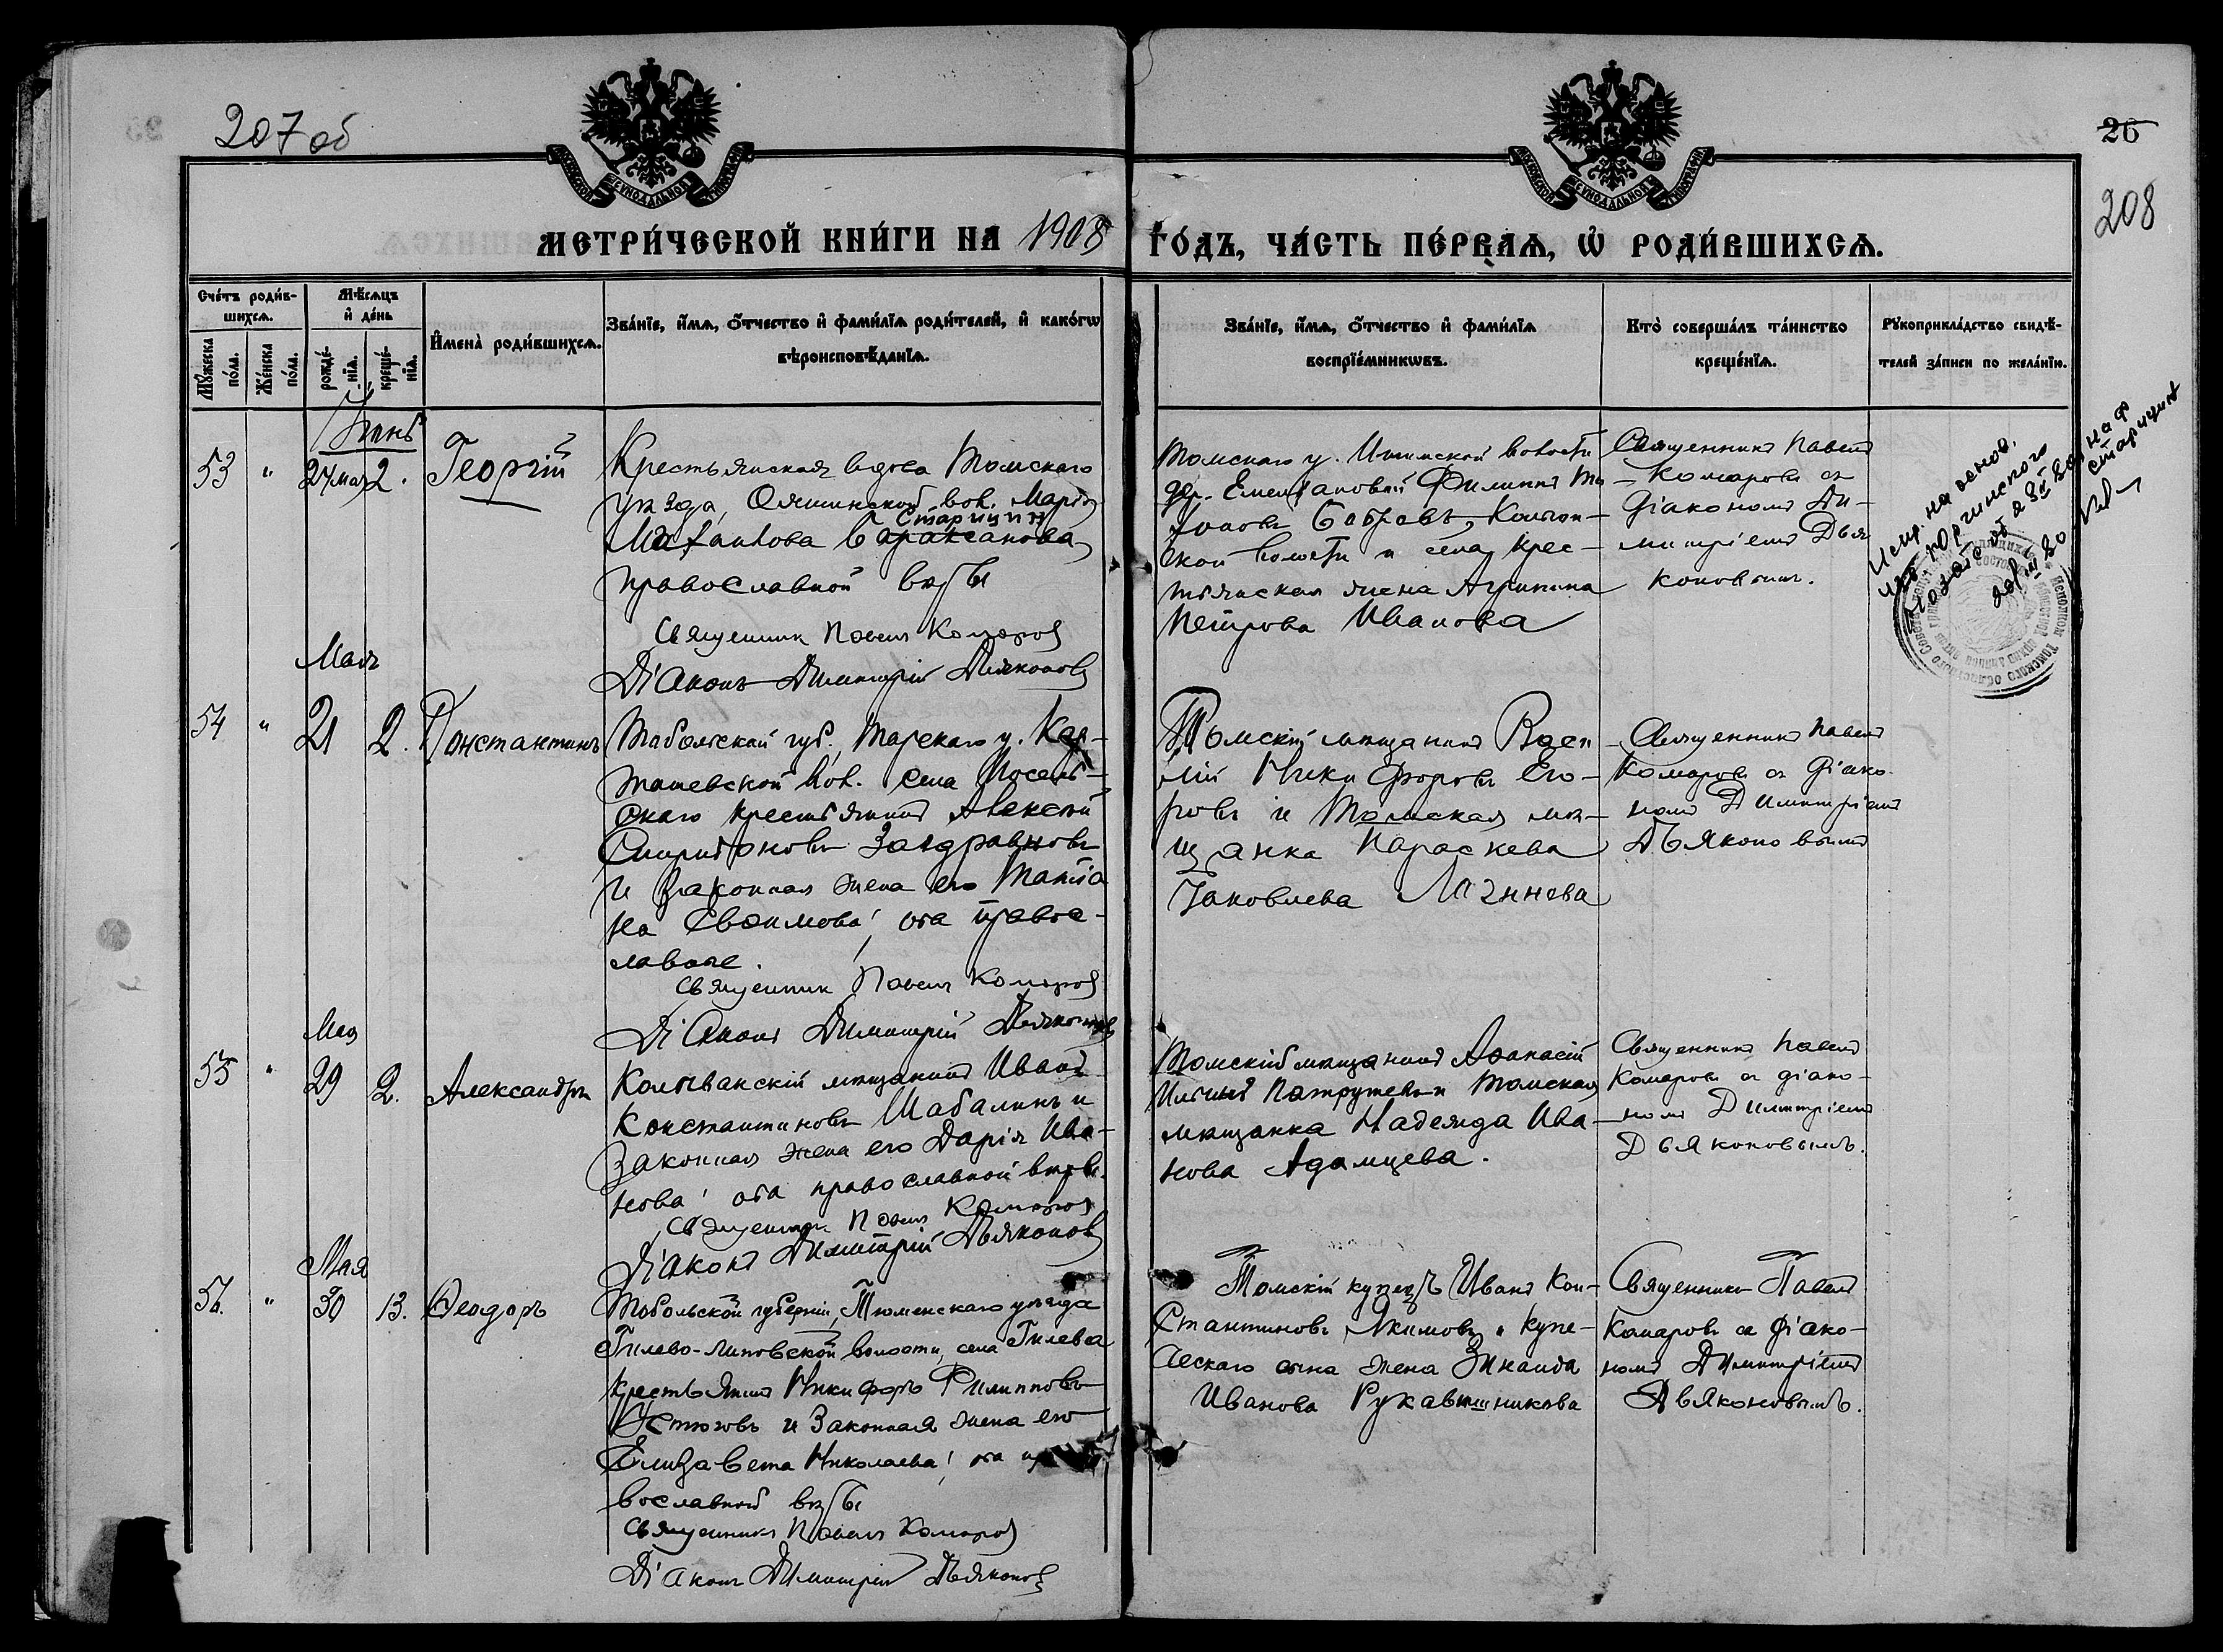 207 об
26
208
МОСКОВСКОЙ СУНОДАЛЬНОЙ ТИПОГРАФІИ
МОСКОВСКОЙ СУНОДАЛЬНОЙ ТИПОГРАФІИ
МЕТРИ́ЧЕСКОЙ КНИ́ГИ НА 1908
ГО́ДЪ, ЧА́СТЬ ПЕ́РВАѦ, Ѡ҆ РОДИ́ВШИХСѦ.
Сче́тъ роди́в-
шихсѧ.
Мѣ́сѧцъ
и҆ де́нь
Мꙋ́жеска
по́ла.
Же́нска
по́ла.
рожде́-
нїѧ.
креще́-
нїѧ.
И҆мена̀ роди́вшихсѧ.
Зва́нїе, и҆́мѧ, ѻ҆́тчество и҆ фами́лїѧ роди́телей, и҆ како́гѡ
вѣроисповѣ́данїѧ.
Зва́нїе, и҆́мѧ, ѻ҆́тчество и҆ фами́лїѧ
воспрїе́мникѡвъ.
Кто̀ соверша́лъ та́инство
креще́нїѧ.
Рꙋкоприкла́дство свидѣ́-
телей за́писи по жела́нїю.
Іюнь
53 " 24 мая 2. Георгій
Крестьянская вдова Томскаго
уѣзда, Ояшинской вол. Марія
Старицин
Матѳіова Вараксанова,
православной вѣры
Священник Павел Комаров
Діаконъ Димитрій Дьяконов
Томскаго у. Ишимской волости
дер. Емельяновой Филиппъ Ти-
Бобровъ,
ской волости и села крес-
тьянская жена Агрипина
Петрова Иванова
Священникъ Павелъ
Комаровъ съ
Діакономъ Ди-
митріемъ Дья
коновымъ.
Испр. на основ.
Мая
54 " 21 2. Константинъ
Тобольской губ., Тарскаго у. Кар-
ташевской вол. села
скаго крестьянинъ Алексѣй
Спиридоновъ Заздравновъ
и законная жена его Татіа
на Евѳимова; оба правос-
лавные.
Священник Павел Комаров
Діаконъ Димитрій Дьяконовъ
Томскій мѣщанинъ Васи
лій Никифоровъ Его-
ровъ и Томская мѣ-
щанка Параскева
Іаковлева
Священникъ Павелъ
Комаровъ съ діако
номъ Димитріемъ
Дьяконовымъ
Мая
55 " 29 2. Александръ
Колыванскій мѣщанинъ Иванъ
Константиновъ Шабалинъ и
законная жена его Дарія Ива-
нова; оба православной вѣры.
Священник Павел Комаров
Діаконъ Димитрій Дьяконов
Томскій мѣщанинъ Аѳанасій
Ильинъ Патрушевъ и Томская
мѣщанка Надежда Ива-
нова Адамцева.
Священникъ Павелъ
Комаровъ съ діако-
номъ Димитріемъ
Дьяконовымъ.
Мая
56. " 30 13. Ѳеодоръ
Тобольской губерніи, Тюменскаго уѣзда
Гилево-Липовской волости, села Гилева
крестьянинъ Никифоръ Филипповъ
Устюговъ и законная жена его
Елизавета Николаева; оба пра
вославной вѣры
Священникъ Павелъ Комаров
Діаконъ Димитрій Дьяконов
Томскій купецъ Иванъ Кон-
стантиновъ Якимовъ и купе-
ческаго сына жена Зинаида
Иванова Рукавишникова
Священникъ Павелъ
Комаровъ съ діако-
номъ Димитріемъ
Дьяконовымъ.